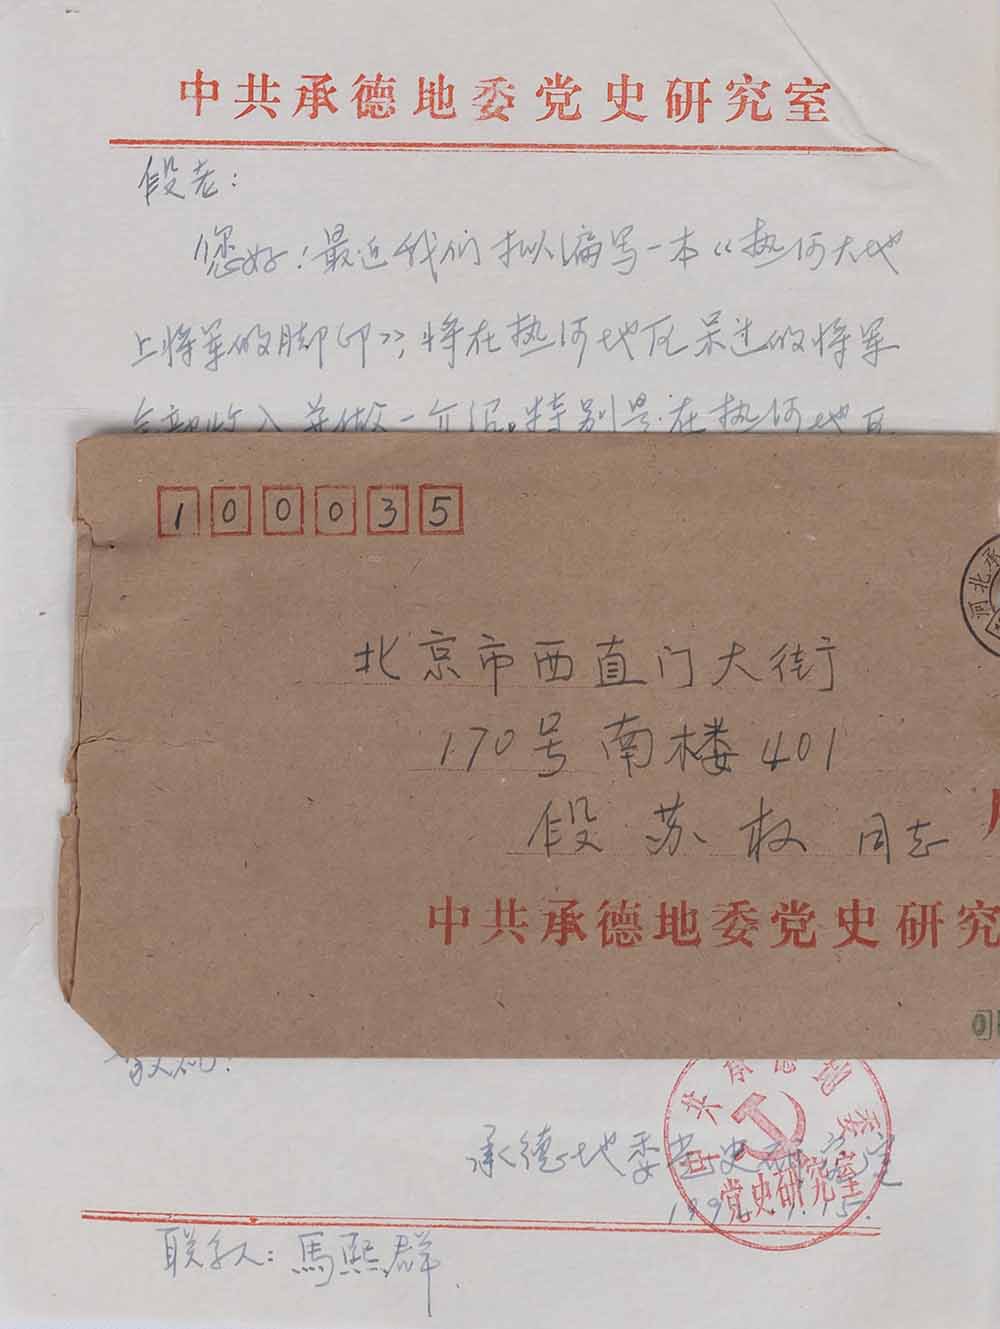 中共承德地委党史研究室
段老：
您好！最近我们拟编写一本《热河大地
上将军的脚印》，将在热河地区呆过的将军
全部收入并做一介绍。特别是在热河地区
100035
河北承
北京市西直门大街
170号南楼401
段苏权 同志
中共承德地委党史研究
敬礼！
中共承德地委
党史研究室
承德地委党史研究室
联系人：馬熙群